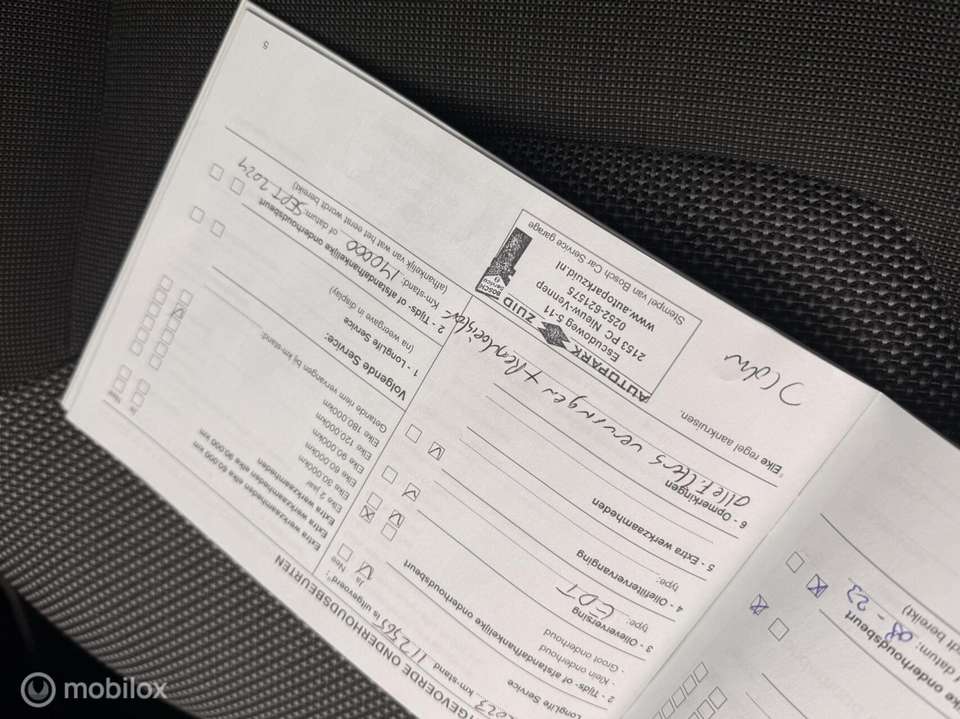 UITGEVOERDE ONDERHOUDSBEURTEN
2023 km-stand 112365 is uitgevoerd*:
Ja
Nee
LongLife Service
2 - Tijds- of afstandafhankelijke onderhoudsbeurt
- Klein onderhoud
- Groot onderhoud
3 - Olieverversing
type: EDT
4 - Oliefiltervervanging
type:
5 - Extra werkzaamheden
6 - Opmerkingen
alle filters vervangen +
*Elke regel aankruisen.
AUTOPARK ZUID
Escudoweg 5-11
2153 PC Nieuw-Vennep
0252-621575
www.autoparkzuid.nl
BOSCH
Service
Stempel van Bosch Car Service garage
Extra werkzaamheden elke 60.000 km
Extra werkzaamheden elke 90.000 km
Extra werkzaamheden
Elke 2 jaar
Elke 30.000km
Elke 60.000km
Elke 90.000km
Elke 120.000km
Elke 180.000km
Getande riem vervangen bij km-stand:
Volgende Service:
1 - LongLife Service
(na weergave in display)
2 - Tijds- of afstandafhankelijke onderhoudsbeurt
Km-stand: 140000 of datum: SEPT 2024
(afhankelijk van wat het eerst wordt bereikt)
5
ke onderhoudsbeurt
datum: 08-22
dt bereikt)
mobilox